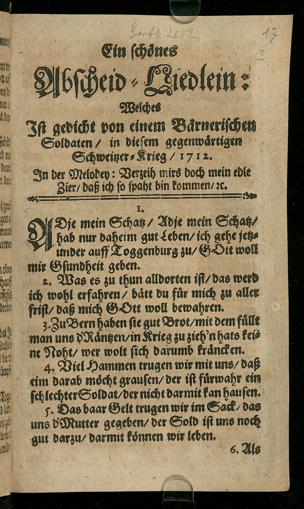 17
Ein schönes
Abscheid-Liedlein:
Welches
Ist gedicht von einem Bärnerischen
Soldaten/ in diesem gegenwärtigen
Schweitzer-Krieg/ 1712.
In der Melodey: Verzeih mirs doch mein edle
Zier/ daß ich so spaht bin kommen/ ꝛc.
1.
ADje mein Schatz/ Adje mein Schatz/
hab nur daheim gut Leben/ ich gehe jetz-
under auff Toggenburg zu/ GOtt woll
mir Gsundheit geben.
2. Was es zu thun alldorten ist/ das werd
ich wohl erfahren/ bätt du für mich zu aller
frist/ daß mich GOtt woll bewahren.
3. Zu Bern haben sie gut Brot/ mit dem füllt
man uns d'Räntzen/ in Krieg zu zieh'n hats kei-
ne Noht/ wer wolt sich darumb kräncken.
4. Viel Hammen trugen wir mit uns/ daß
eim darab möcht grausen/ der ist fürwahr ein
schlechter Soldat/ der nicht darmit kan hausen.
5. Das baar Gelt trugen wir im Sack/ das
uns d'Mutter gegeben/ der Sold ist uns noch
gut darzu/ darmit können wir leben.
6. Als